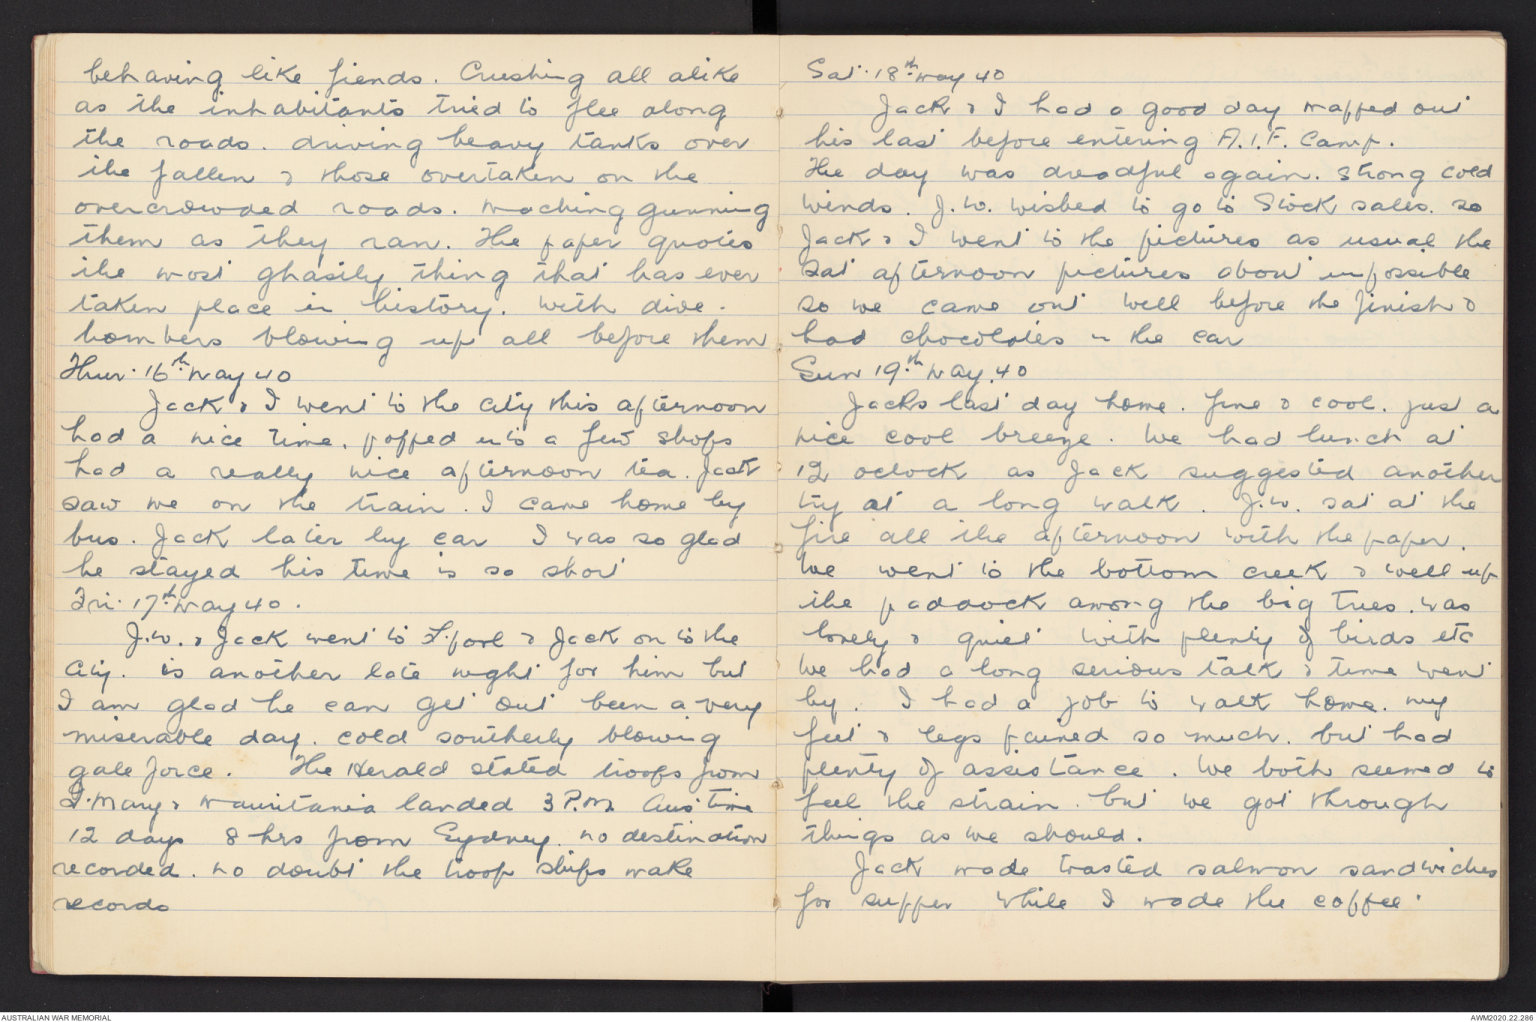 behaving like fiends. Crushing all alike
as the inhabitants tried to flee along
the roads. driving heavy tanks over
the fallen & those overtaken on the
overcrowded roads. maching gunning
them as they ran. The paper quotes
the most ghastly thing that has ever
taken place in history. with dive-
bombers blowing up all before them
Thur. 16th May 40
Jack & I went to the city this afternoon
had a nice time. popped into a few shops
had a really nice afternoon tea. Jack
saw me on the train. I came home by
bus. Jack later by car I was so glad
he stayed his time is so short
Fri. 17th May 40.
J.W. & Jack went to L.pool & Jack on to the
city. is another late night for him but
I am glad he can get out been a very
miserable day. cold southerly blowing
gale force. The Herald stated troops from
Q.Mary & Mauritania landed 3 P.M. Aus time
12 days 8 hrs from Sydney. no destination
recorded. no doubt the troop ships make
records
Sat. 18th May 40
Jack & I had a good day mapped out
his last before entering A.I.F. Camp.
The day was dreadful again. strong cold
winds. J.W. wished to go to Stock sales. so
Jack & I went to the pictures as usual the
Sat afternoon pictures about impossible
so we came out well before the finish &
had chocolates in the car
Sun 19th May. 40
Jacks last day home. fine & cool. just a
nice cool breeze. We had lunch at
12 oclock as Jack suggested another
try at a long walk. J.W. sat at the
fire all the afternoon with the paper.
We went to the bottom creek & well up
the paddock among the big trees. was
lovely & quiet with plenty of birds etc
We had a long serious talk & time went
by. I had a job to walk home. my
feet & legs pained so much. but had
plenty of assistance. We both seemed to
feel the strain. but we got through
things as we should.
Jack made toasted salmon sandwiches
for supper while I made the coffee.
AUSTRALIAN WAR MEMORIAL
AWM2020.22.286